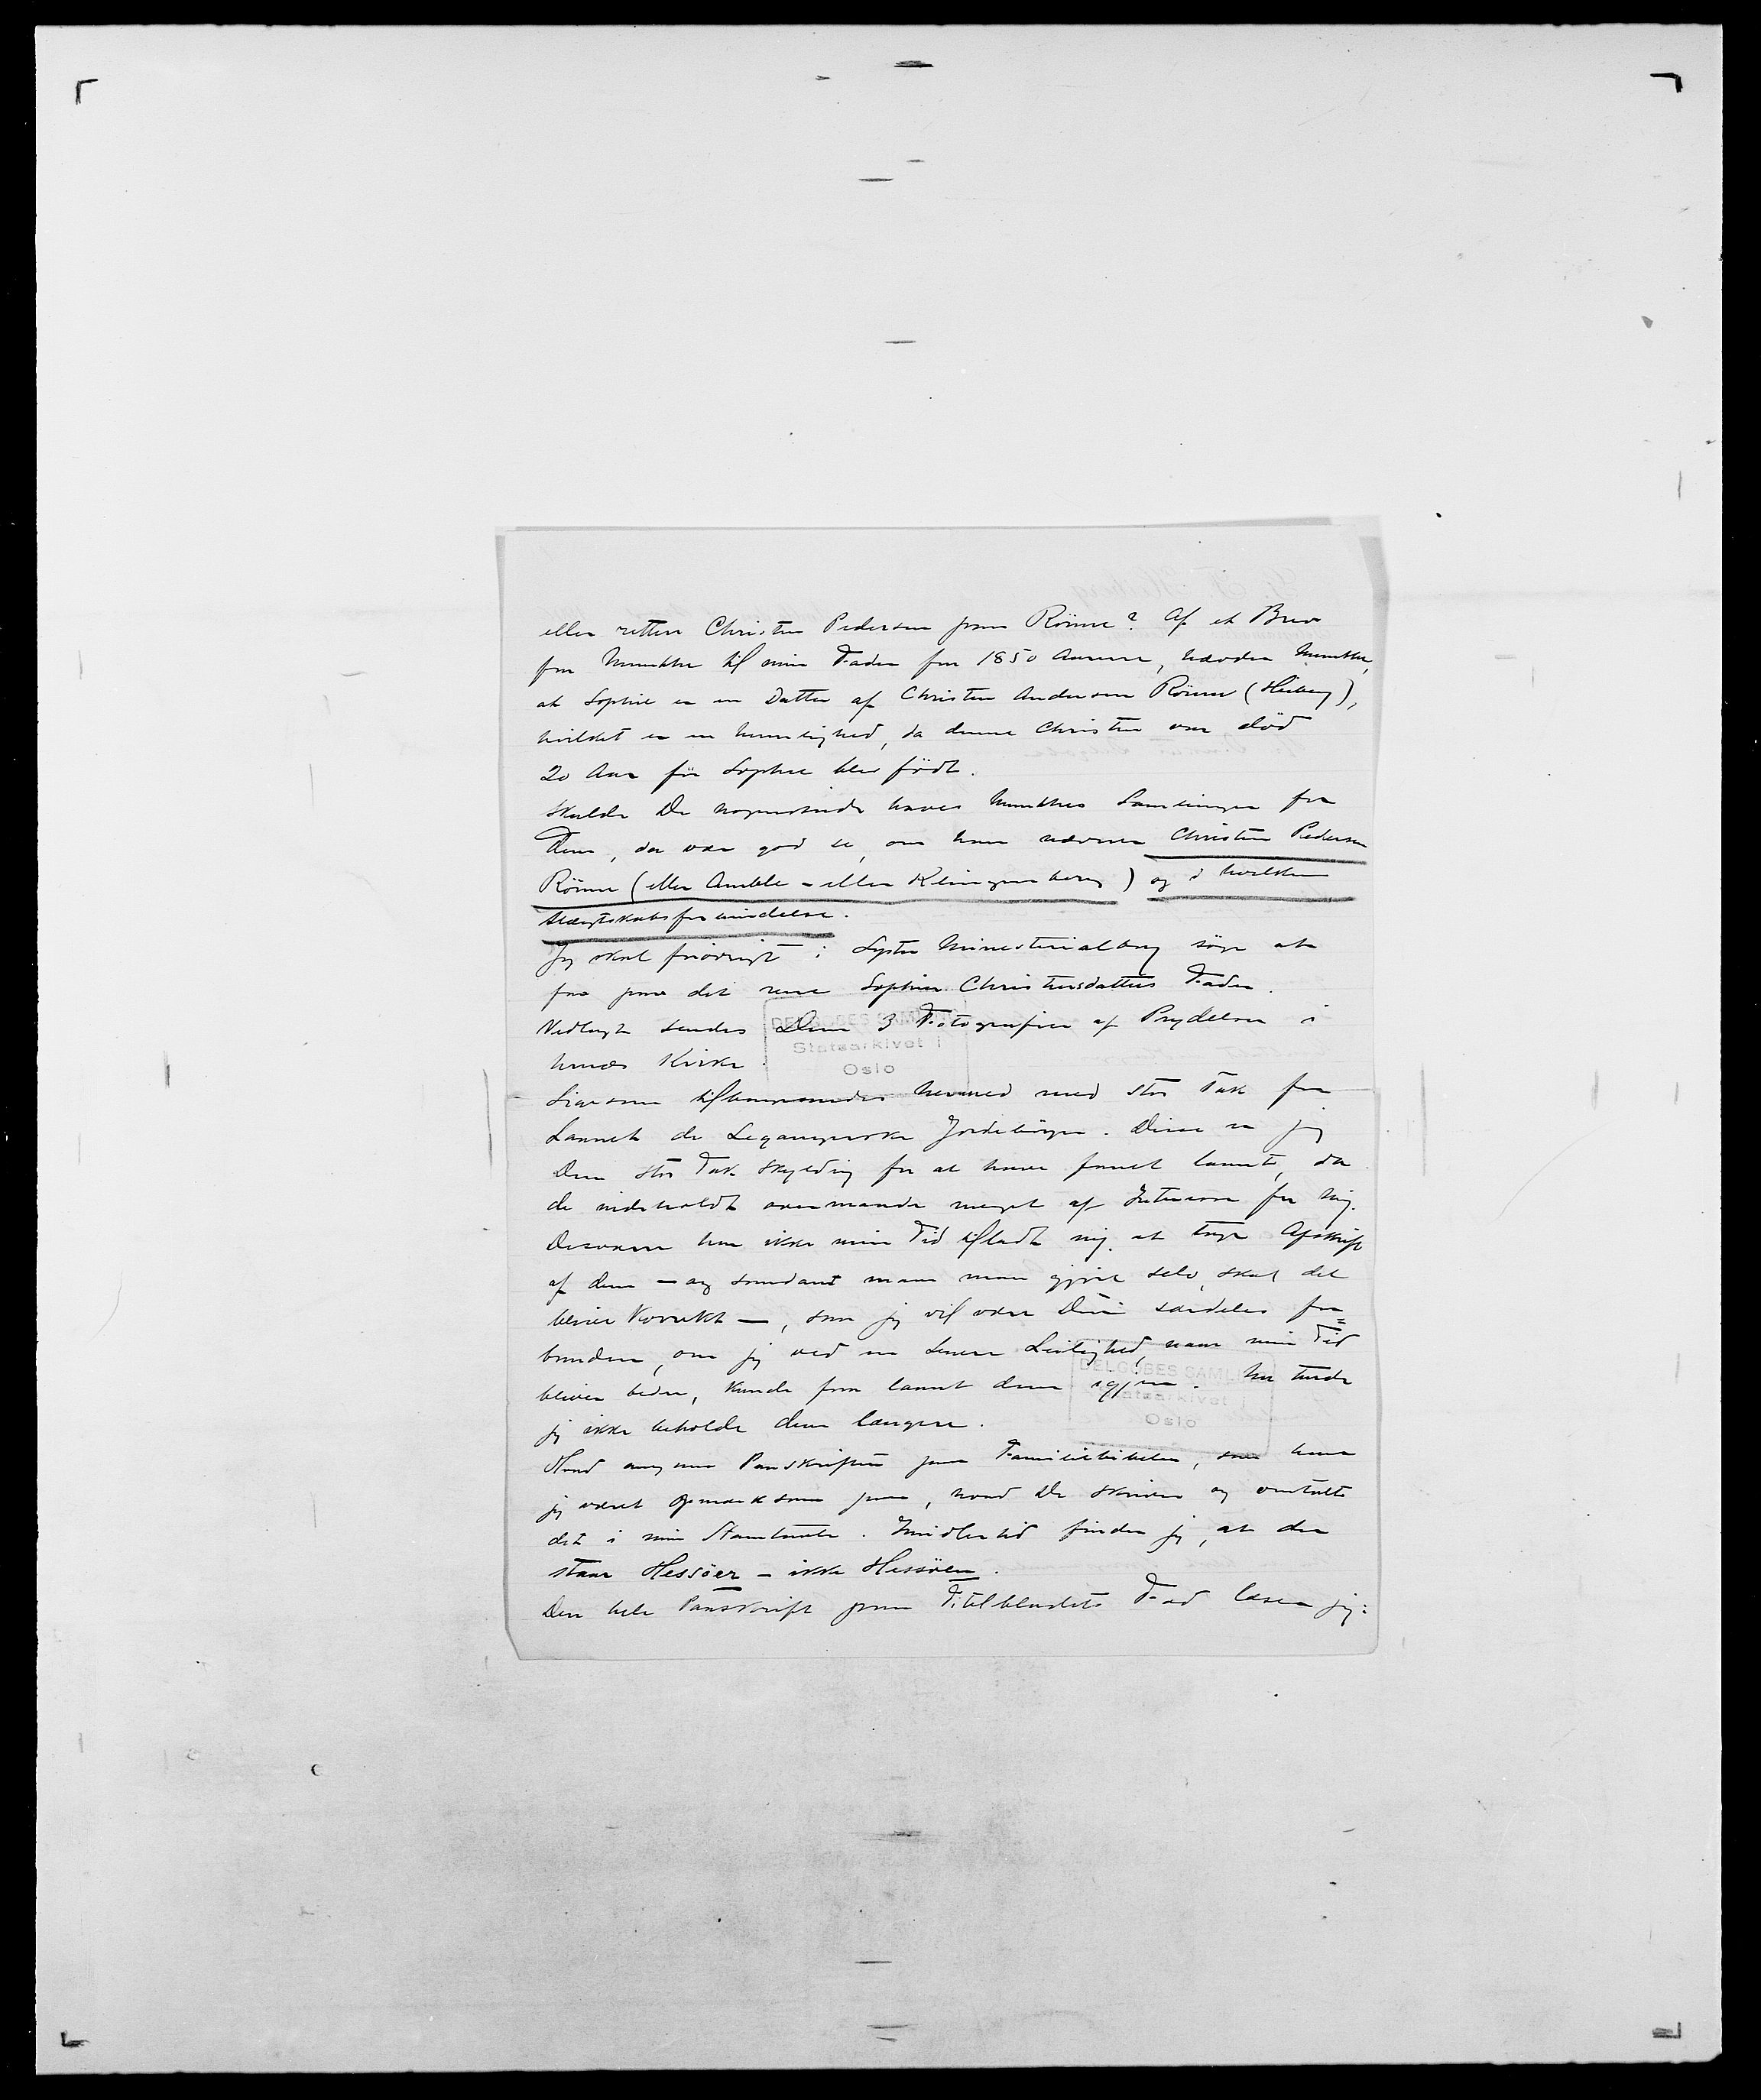 eller rettere Christen Pedersen paa Rönne? Af et Brev
fra Munthe til min Fader fra 1850 Aarene, hævder Munthe,
at Sophie er en Datter af Christen Andersen Rönne (Heiberg),
hvilket er en umulighed, da denne Christen var död
20 Aar för Sophie blev födt.
Skulde De nogensinde have Munthes Samlinger for
Dem, da vær god se, om han nævner Christen Pedersen
Rönne (eller Amble - eller Klingenberg) og i hvilken
Slægtskabsforbindelse.
Jeg skal forövrigt i Lyster Ministerialbog söge at
faa paa det rene Sophie Christensdatters Fader.
Vedlagt sendes Dem 3 Fotografier af Prydelser i
Urnæs Kirke.
Ligesom tilbagesendes hermed med stor Tak for
Laanet de Leganger­ske Jordeböger. Disse er jeg
Dem stor Tak skyldig for at have faaet laant, da
de indeholdt overmaade meget af Interesse for mig.
Desværre har ikke min Tid tilladt mig at tage Afskrift
af dem — og saadant maa man gjöre selv, skal det
blive korrekt —, saa jeg vil være Dem særdeles for=
bunden, om jeg ved en senere Leilighed, naar min Tid
bliver bedre, kunde faa laant dem igjen. Nu turde
jeg ikke beholde dem længere.
Hvad angaar Paaskriften paa Familiebibelen, saa har
jeg været opmærksom paa, hvad De skriver og omtalte
det i min Stamtavle. Imidlertid finder jeg, at der
staar Hessöer - ikke Hessöen.
Den hele Paaskrift paa Titelbladets Fod læser jeg:
DELGOBES SAMLING
Statsarkivet i
Oslo
DELGOBES SAMLING
Statsarkivet i
Oslo